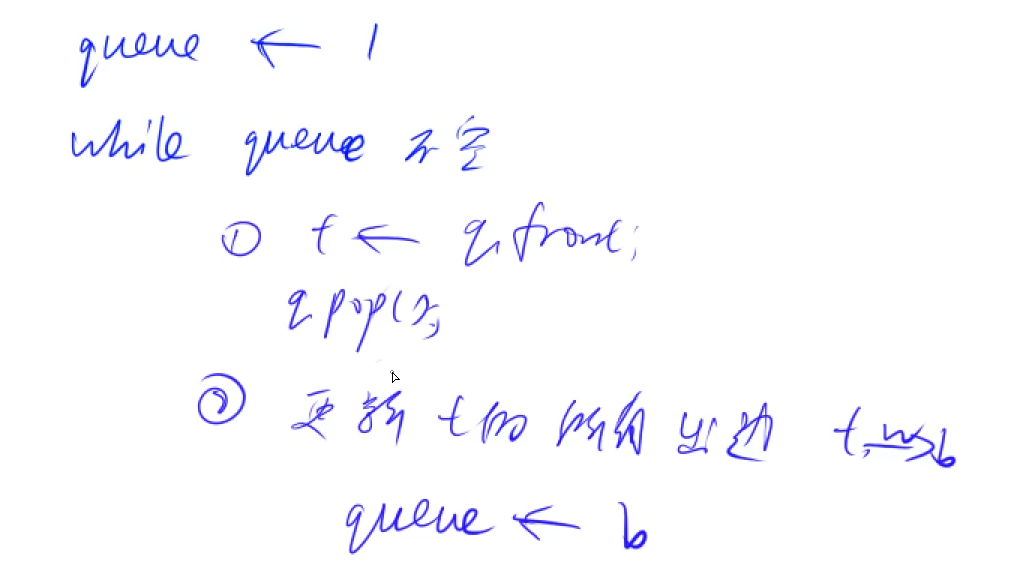 queue ← 1
while queue 不空
① t ← q.front;
q.pop();
② 更新 t的 所有 出边 t w→b
queue ← b